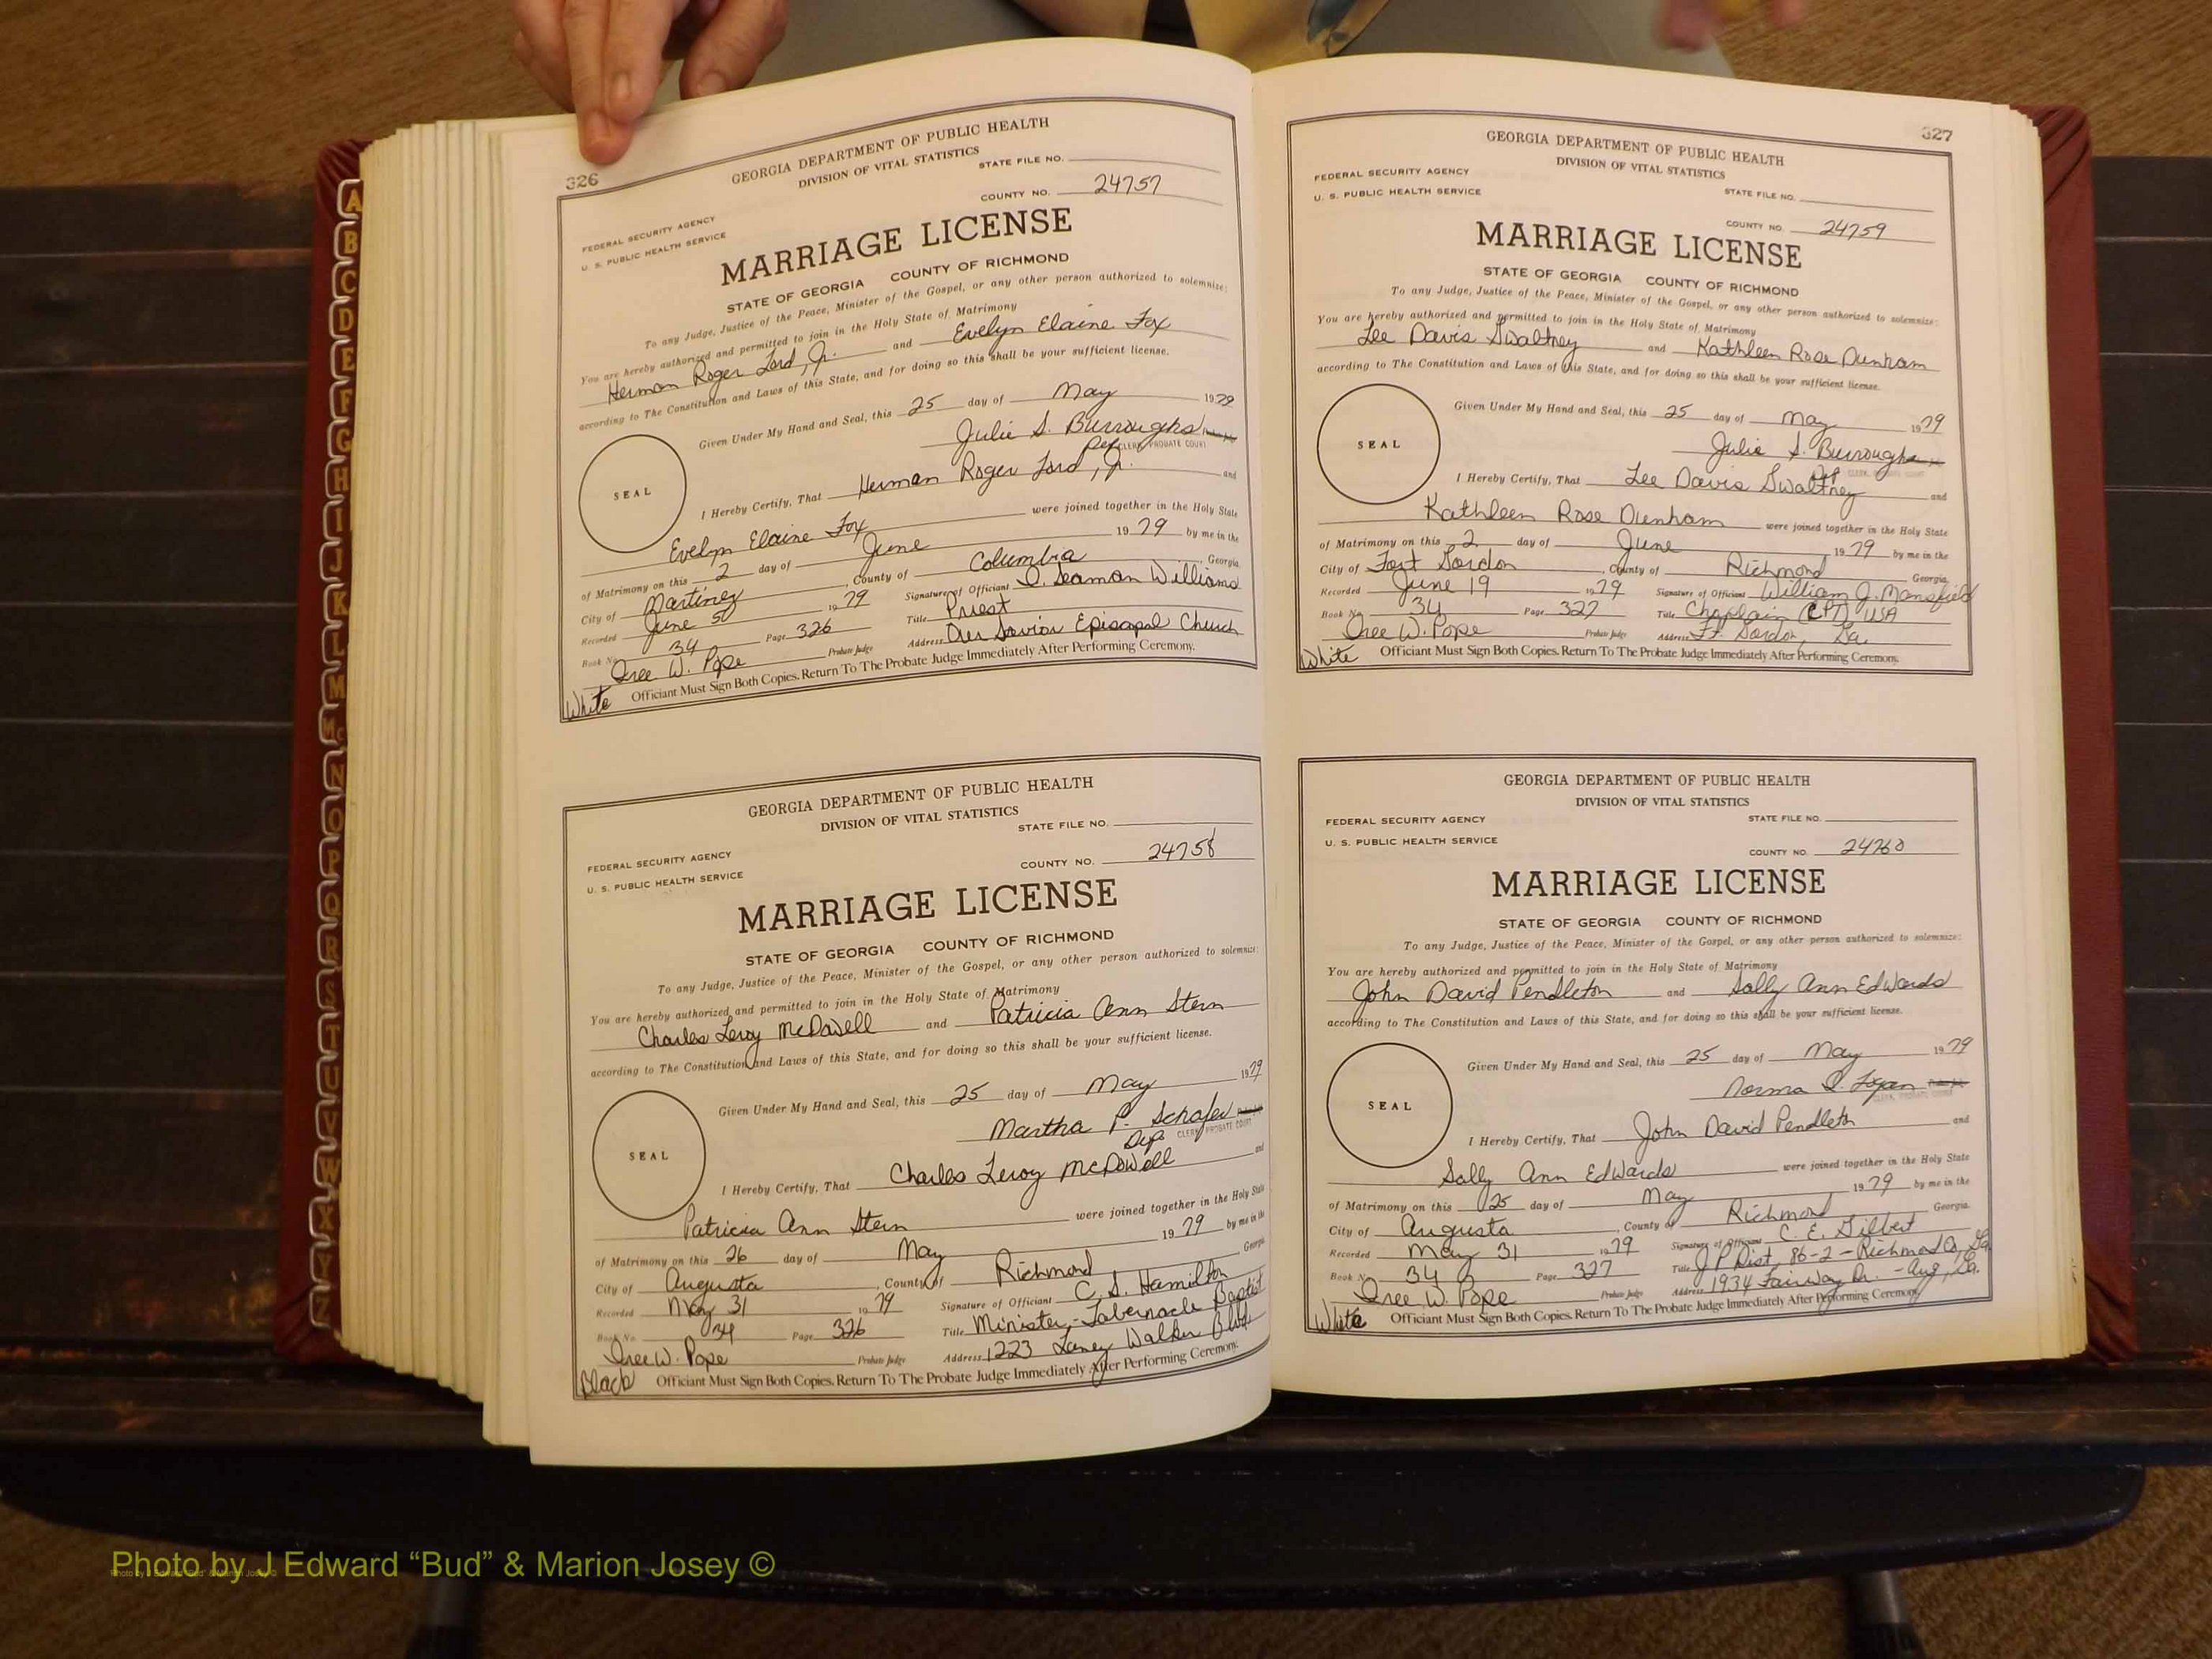 A
B
C
D
E
F
G
H
I
J
K
L
M
Mc
N
O
P
Q
R
S
T
U
V
W
X
Y
Z
326
GEORGIA DEPARTMENT OF PUBLIC HEALTH
DIVISION OF VITAL STATISTICS
STATE FILE NO.
COUNTY NO. 24757
FEDERAL SECURITY AGENCY
U. S. PUBLIC HEALTH SERVICE
MARRIAGE LICENSE
STATE OF GEORGIA COUNTY OF RICHMOND
To any Judge, Justice of the Peace, Minister of the Gospel, or any other person authorized to solemnize:
You are hereby authorized and permitted to join in the Holy State of Matrimony
Herman Roger Ford, Jr. and Evelyn Elaine Fox
according to The Constitution and Laws of this State, and for doing so this shall be your sufficient license.
Given Under My Hand and Seal, this 25 day of May 1979
Julie S. Burroughs
Dep. CLERK, PROBATE COURT
SEAL
I Hereby Certify, That Herman Roger Ford, Jr. and
Evelyn Elaine Fox were joined together in the Holy State
of Matrimony on this 2 day of June 1979 by me in the
City of Martinez, County of Columbia, Georgia.
Recorded June 5 1979 Signature of Officiant Seaman Williams
Book No. 34 Page 326 Title Priest
Iree W. Pope Probate Judge Address Our Savior Episcopal Church
White Officiant Must Sign Both Copies. Return To The Probate Judge Immediately After Performing Ceremony.
GEORGIA DEPARTMENT OF PUBLIC HEALTH
DIVISION OF VITAL STATISTICS
STATE FILE NO.
COUNTY NO. 24758
FEDERAL SECURITY AGENCY
U. S. PUBLIC HEALTH SERVICE
MARRIAGE LICENSE
STATE OF GEORGIA COUNTY OF RICHMOND
To any Judge, Justice of the Peace, Minister of the Gospel, or any other person authorized to solemnize:
You are hereby authorized and permitted to join in the Holy State of Matrimony
Charles Leroy McDowell and Patricia Ann Stern
according to The Constitution and Laws of this State, and for doing so this shall be your sufficient license.
Given Under My Hand and Seal, this 25 day of May 1979
Martha P. Schafer
Dep. CLERK, PROBATE COURT
SEAL
I Hereby Certify, That Charles Leroy McDowell and
Patricia Ann Stern were joined together in the Holy State
of Matrimony on this 26 day of May 1979 by me in the
City of Augusta, County of Richmond Georgia
Recorded May 31 1979 Signature of Officiant C. S. Hamilton
Book No. 34 Page 326 Title Minister, - Tabernacle Baptist
Iree W. Pope Probate Judge Address 1223 Laney Walker Blvd.
Black Officiant Must Sign Both Copies. Return To The Probate Judge Immediately After Performing Ceremony.
327
GEORGIA DEPARTMENT OF PUBLIC HEALTH
DIVISION OF VITAL STATISTICS
FEDERAL SECURITY AGENCY
U. S. PUBLIC HEALTH SERVICE
STATE FILE NO.
COUNTY NO. 24759
MARRIAGE LICENSE
STATE OF GEORGIA COUNTY OF RICHMOND
To any Judge, Justice of the Peace, Minister of the Gospel, or any other person authorized to solemnize:
You are hereby authorized and permitted to join in the Holy State of Matrimony
Lee Davis Swaltney and Kathleen Rose Dunham
according to The Constitution and Laws of this State, and for doing so this shall be your sufficient license.
Given Under My Hand and Seal, this 25 day of May 1979
Julie S. Burroughs
Dep. CLERK, PROBATE COURT
SEAL
I Hereby Certify, That Lee Davis Swaltney and
Kathleen Rose Dunham were joined together in the Holy State
of Matrimony on this 2 day of June 1979 by me in the
City of Fort Gordon, County of Richmond Georgia
Recorded June 19 1979 Signature of Officiant William J. Mansfield
Book No. 34 Page 327 Title Chaplain (CPT) USA
Iree W. Pope Probate Judge Address Ft. Gordon, Ga.
White Officiant Must Sign Both Copies. Return To The Probate Judge Immediately After Performing Ceremony.
GEORGIA DEPARTMENT OF PUBLIC HEALTH
DIVISION OF VITAL STATISTICS
STATE FILE NO.
FEDERAL SECURITY AGENCY
U. S. PUBLIC HEALTH SERVICE
COUNTY NO. 24760
MARRIAGE LICENSE
STATE OF GEORGIA COUNTY OF RICHMOND
To any Judge, Justice of the Peace, Minister of the Gospel, or any other person authorized to solemnize:
You are hereby authorized and permitted to join in the Holy State of Matrimony
John David Pendleton and Sally Ann Edwards
according to The Constitution and Laws of this State, and for doing so this shall be your sufficient license.
Given Under My Hand and Seal, this 25 day of May 1979
Norma Logan
CLERK, PROBATE COURT
SEAL
I Hereby Certify, That John David Pendleton and
Sally Ann Edwards were joined together in the Holy State
of Matrimony on this 25 day of May 1979 by me in the
City of Augusta, County of Richmond Georgia.
Recorded May 31 1979 Signature of Officiant C. E. Gilbert
Book No. 34 Page 327 Title J P Dist, 86-2 - Richmond Co, Ga.
Iree W. Pope Probate Judge Address 1934 Fairway Dr. - Aug, Ga.
White Officiant Must Sign Both Copies. Return To The Probate Judge Immediately After Performing Ceremony.
Photo by J Edward “Bud” & Marion Josey ©
Photo by J Edward “Bud” & Marion Josey ©